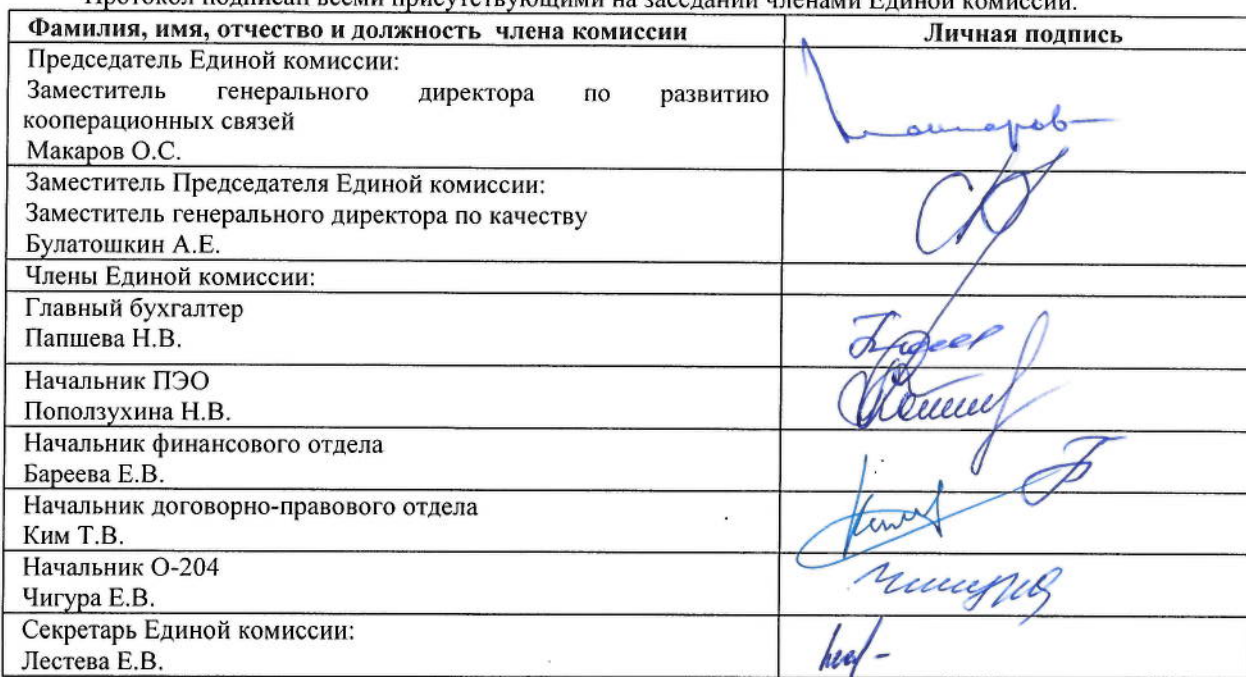 Протокол подписан всеми присутствующими на заседании членами Единой комиссии.
Фамилия, имя, отчество и должность члена комиссии
Личная подпись
Председатель Единой комиссии:
Заместитель генерального директора по развитию
кооперационных связей
Макаров О.С.
Заместитель Председателя Единой комиссии:
Заместитель генерального директора по качеству
Булатошкин А.Е.
Члены Единой комиссии:
Главный бухгалтер
Папшева Н.В.
Начальник ПЭО
Поползухина Н.В.
Начальник финансового отдела
Бареева Е.В.
Начальник договорно-правового отдела
Ким Т.В.
Начальник О-204
Чигура Е.В.
Секретарь Единой комиссии:
Лестева Е.В.